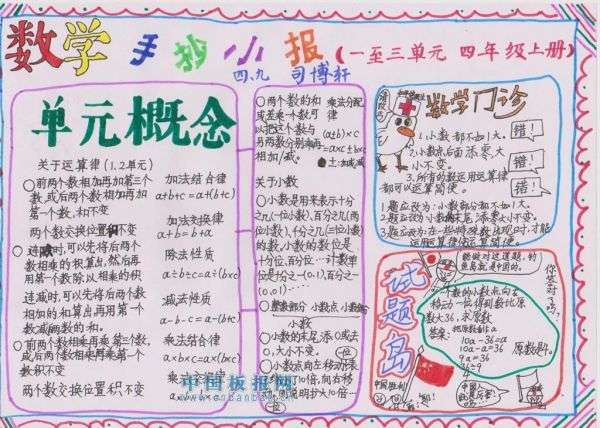 数学手抄小报(一至三单元 四年级上册)
四、九 司博轩
单元概念
关于运算律(1.2单元)
○前两个数相加再加第三个
数,或后两个数相加再加
第一个数,和不变
两个数交换位置和不变
加法结合律
a+b+c=a+(b+c)
加法交换律
a+b=b+a
除法性质
a÷b÷c=a÷(b×c)
减法性质
a-b-c=a-(b+c)
乘法结合律
a×b×c=a×(b×c)
乘法交换律
连减时,可以先将后两个
数相乘的积算出,然后再
用第一个数除以相乘的积
连减时,可以先将后两个数
相加的和算出再用第一个
数减两数的和。
○前两个数相乘再乘第三个数,
或后两个数相乘再乘第一个数
积不变
两个数交换位置积不变
○两个数的和
或差乘一个数可
以把这个数与
另两数分别相乘再
相加/减。
乘法分配
律
(a±b)×c
=a×c±b×c
关于小数
○小数是用来表示十分
之几(一位小数),百分之几(两
位小数),千分之几(三位小数)
的数,小数的数位是
十分位,百分位…计数单
位是十分之一(0.1),百分之一
(0.01)……
○整数部分 小数点 小数部分
小数
○小数的末尾添0或去
0,大小不变。
○小数点向左移动
数学门诊
1.小数都不如1大。
错!
2.小数点后面添零大
小不变。
错!
3.所有的数运用运算律
都可以运算简便。
错!
1.题应改为:小数部分都不如1大。
2.题应改为:小数的末尾添零大小不变。
试题岛
能做对这道题,钓
鱼岛就是中国的。
一个数的小数点向右
移动一位得到数比原
数大36,求原数
答案:把原数看作a
10a-36=a
10a-a=36
9a=36
原数是4。
你答对了吗?
中国板报网